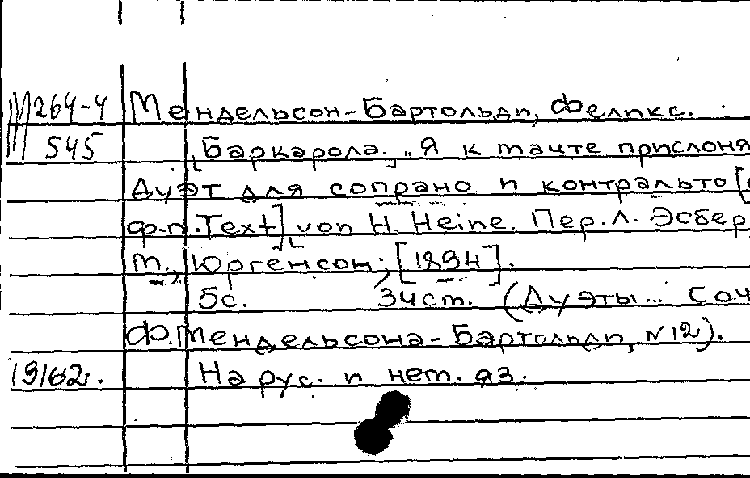 М264-4 Мендельсон-Бартольди, Феликс.
545 [Баркарола.] „Я к мачте прислоня
Дуэт для сопрано и контральто [с
ф-п. Text] von H. Heine. Пер. Л. Эсбер
М., Юргенсон, [1894].
5с. 3ч ст. (Дуэты... Соч
Ф. Мендельсона-Бартольди, №12).
19162. На рус. и нем. яз.